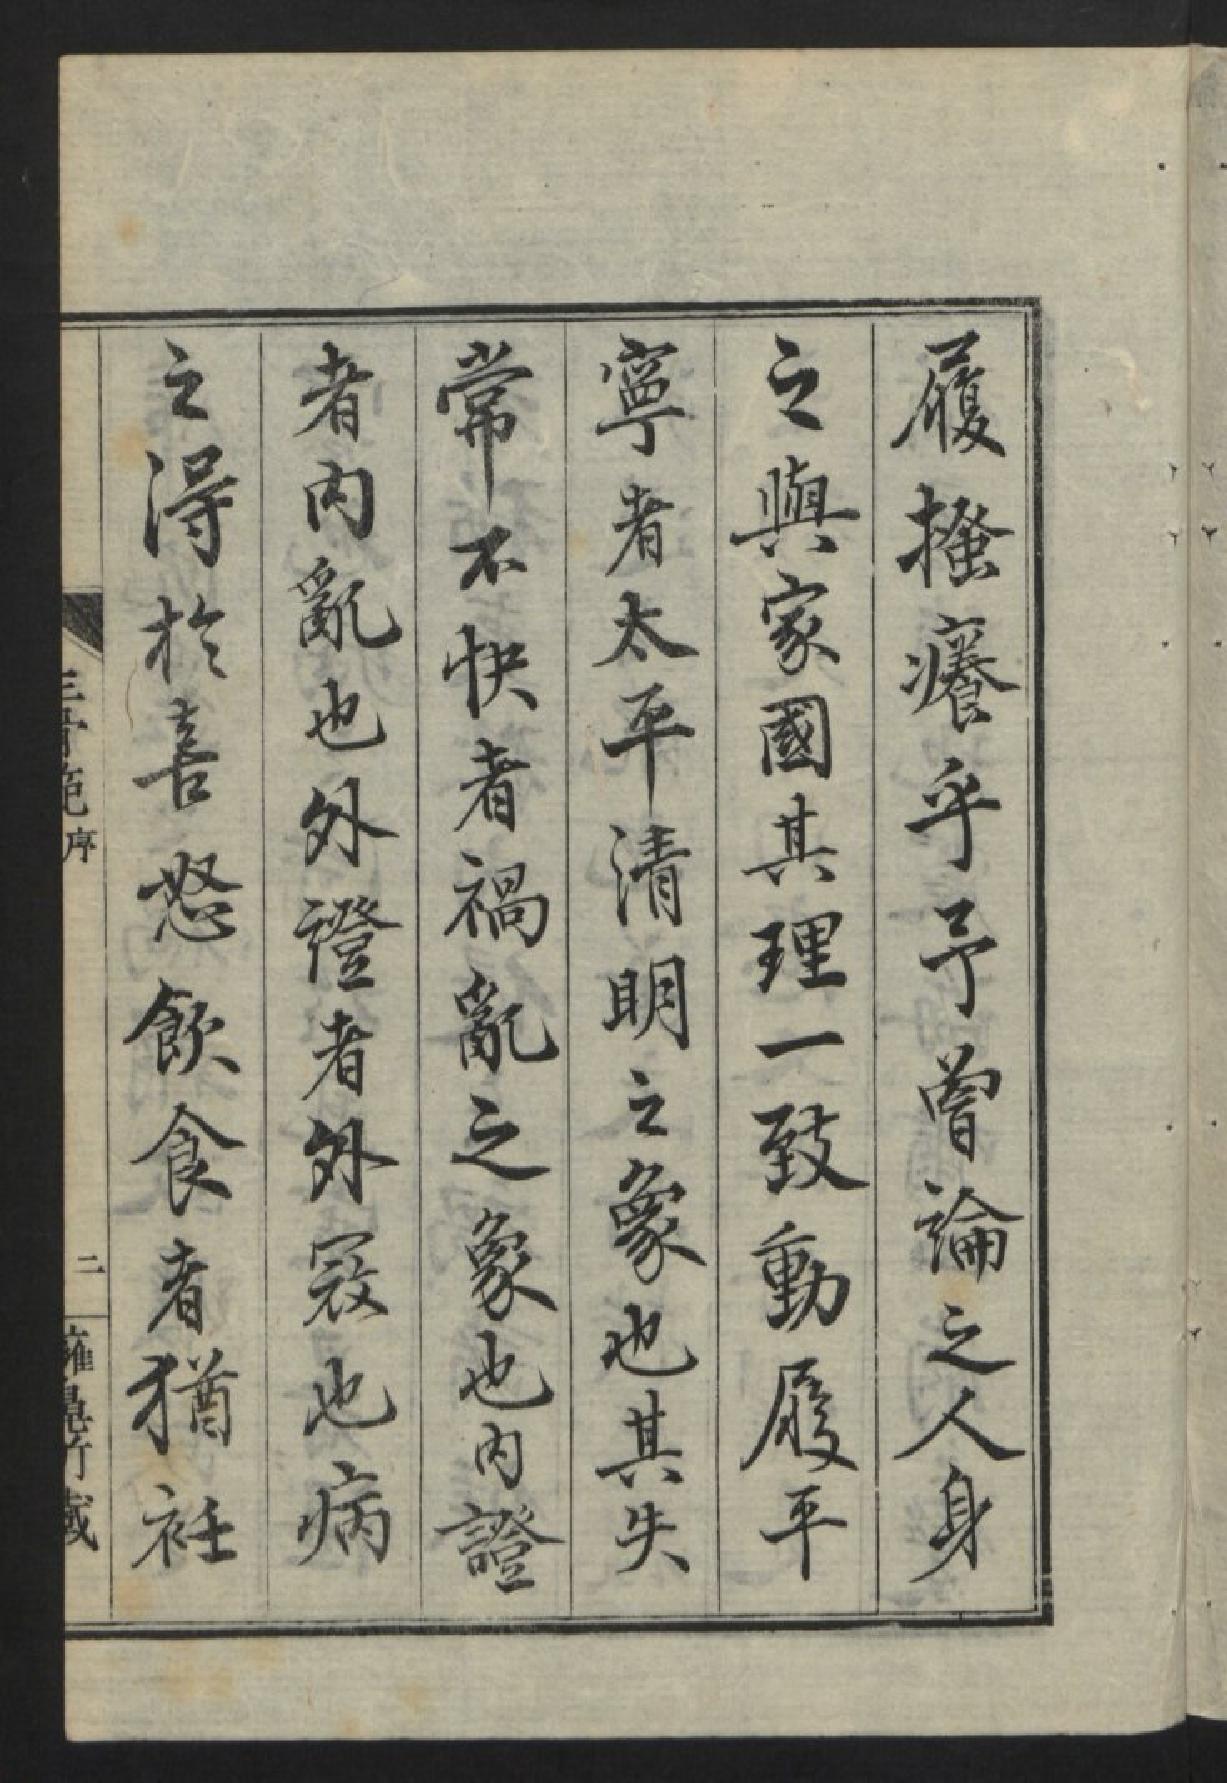 履搔癢乎予曾論之人身
之與家國其理一致動履平
寧者太平清明之象也其失
常不快者禍亂之象也內證
者內亂也外證者外寇也病
之得於喜怒飲食者猶衽
序
二